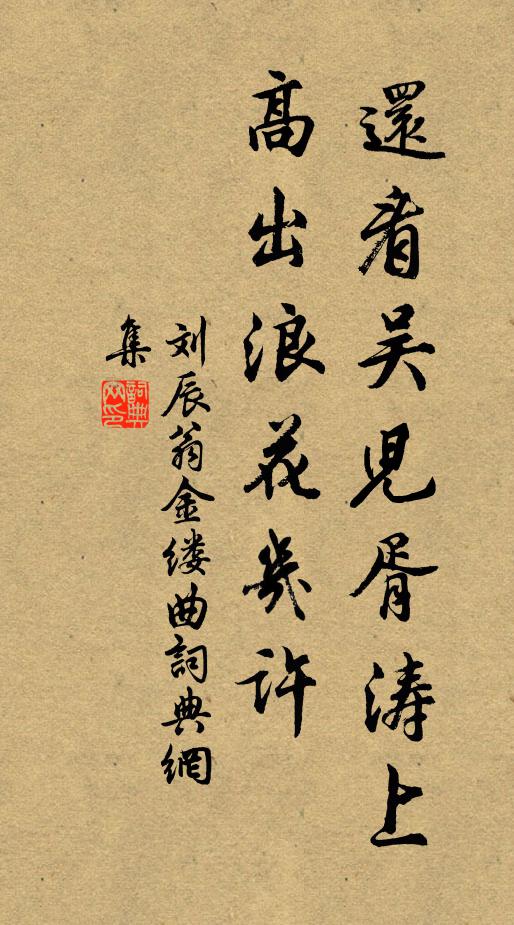 還看吴兒胥涛上
高出浪花幾許
刘辰翁金缕曲詞典網
集
詞典网印